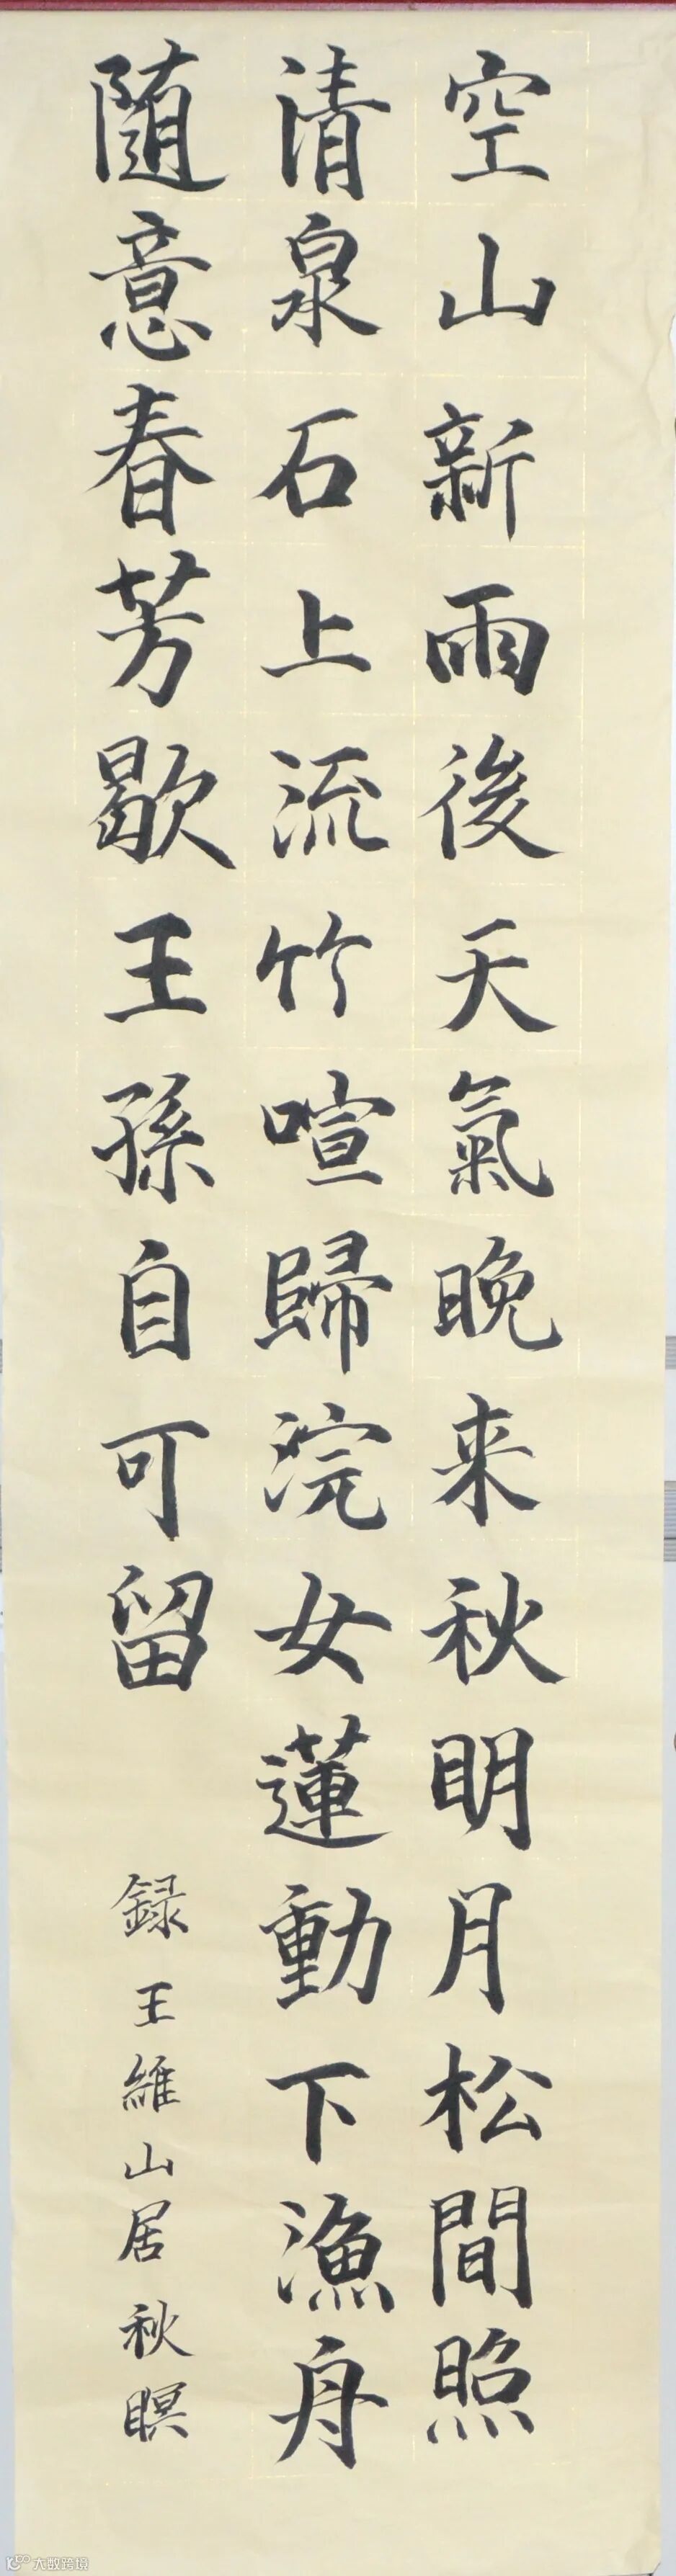 空山新雨後天氣晚来秋明月松間照
清泉石上流竹喧歸浣女蓮動下漁舟
随意春芳歇王孫自可留
録王維山居秋暝
大数跨境